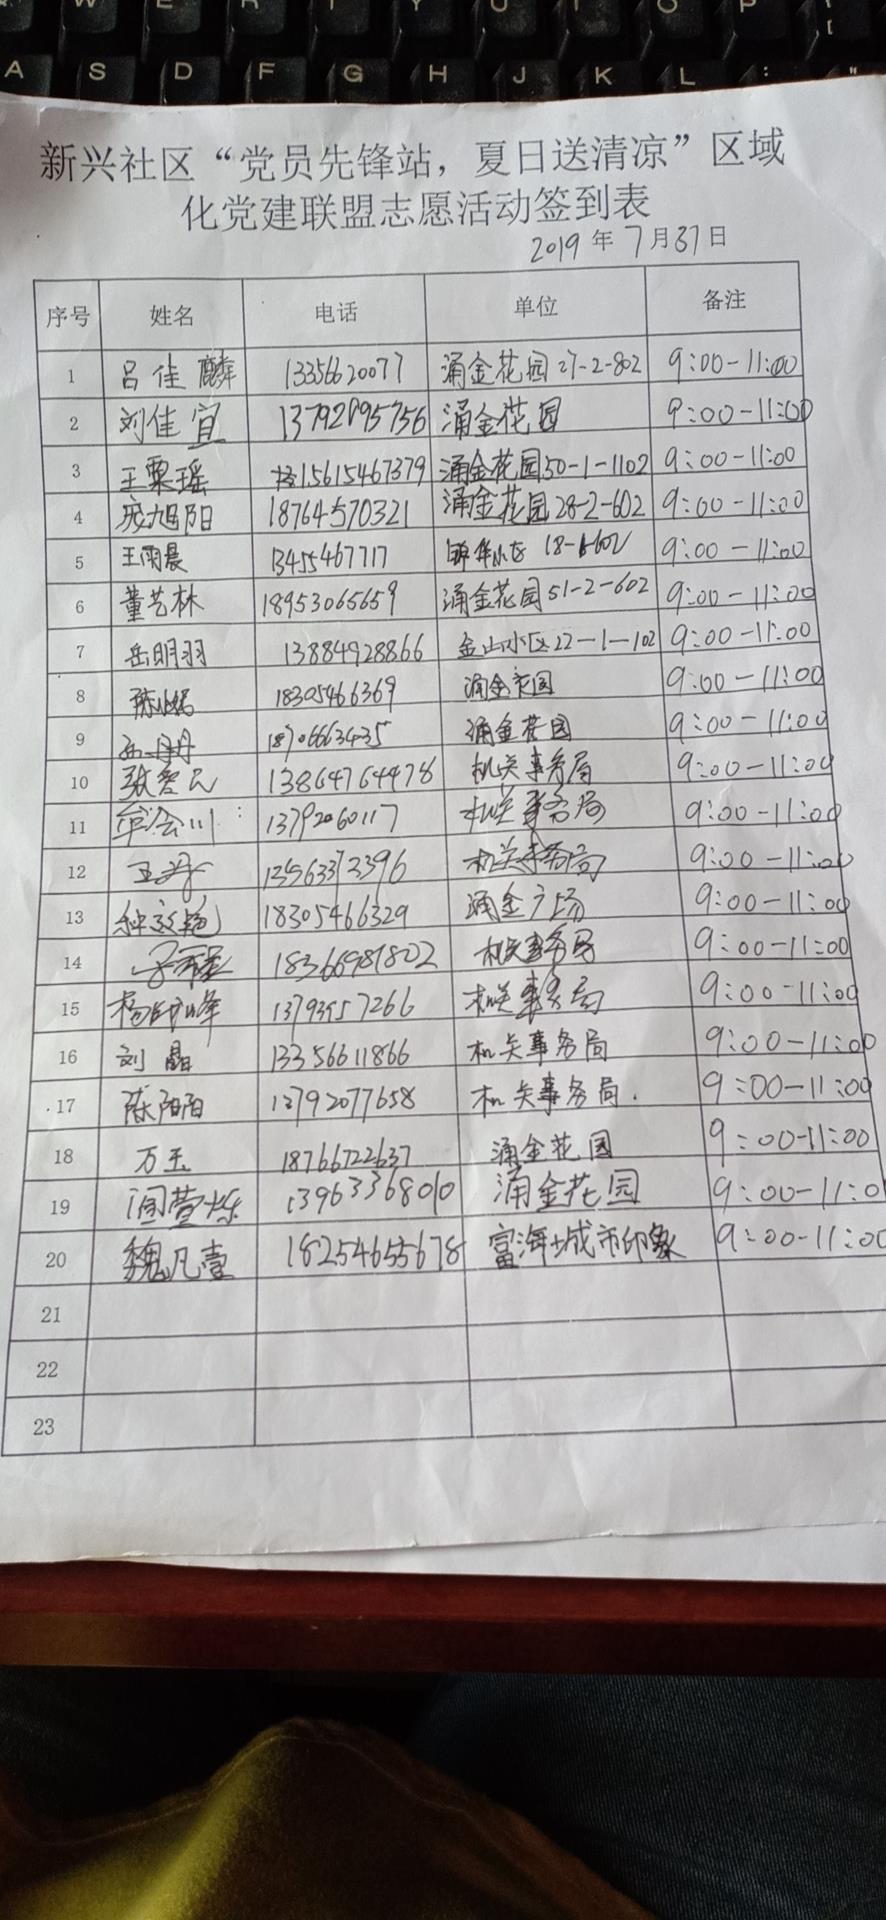 A S D F G H J K L
新兴社区“党员先锋站，夏日送清凉”区域
化党建联盟志愿活动签到表
2019 年 7 月 31 日
序号 姓名 电话 单位 备注
1 吕佳麟 13356620077 涌金花园 27-2-802 9:00-11:00
2 刘佳宜 13792895756 涌金花园 9:00-11:00
3 王粟瑶 15615467379 涌金花园50-1-1102 9:00-11:00
4 旭阳 18764570321 涌金花园28-2-602 9:00-11:00
5 王雨晨 13455467717 9:00-11:00
6 董艺林 18953065659 涌金花园51-2-602 9:00-11:00
7 岳明羽 13884928866 金山小区22-1-102 9:00-11:00
8 18305466369 涌金花园 9:00-11:00
9 涌金花园 9:00-11:00
10 张智民 13864764478 机关事务局 9:00-11:00
11 13792060117 机关事务局 9:00-11:00
12 机关事务局 9:00-11:00
13 18305466329 涌金广场 9:00-11:00
14 18366981802 机关事务局 9:00-11:00
15 机关事务局 9:00-11:00
16 刘晶 13356611866 机关事务局 9:00-11:00
17 陈阳阳 13792077658 机关事务局. 9:00-11:00
18 万玉 18766722637 涌金花园 9:00-11:00
19 13963368010 涌金花园 9:00-11:0
20 魏凡壹 18254655678 富海城市印象 9:00-11:00
21
22
23